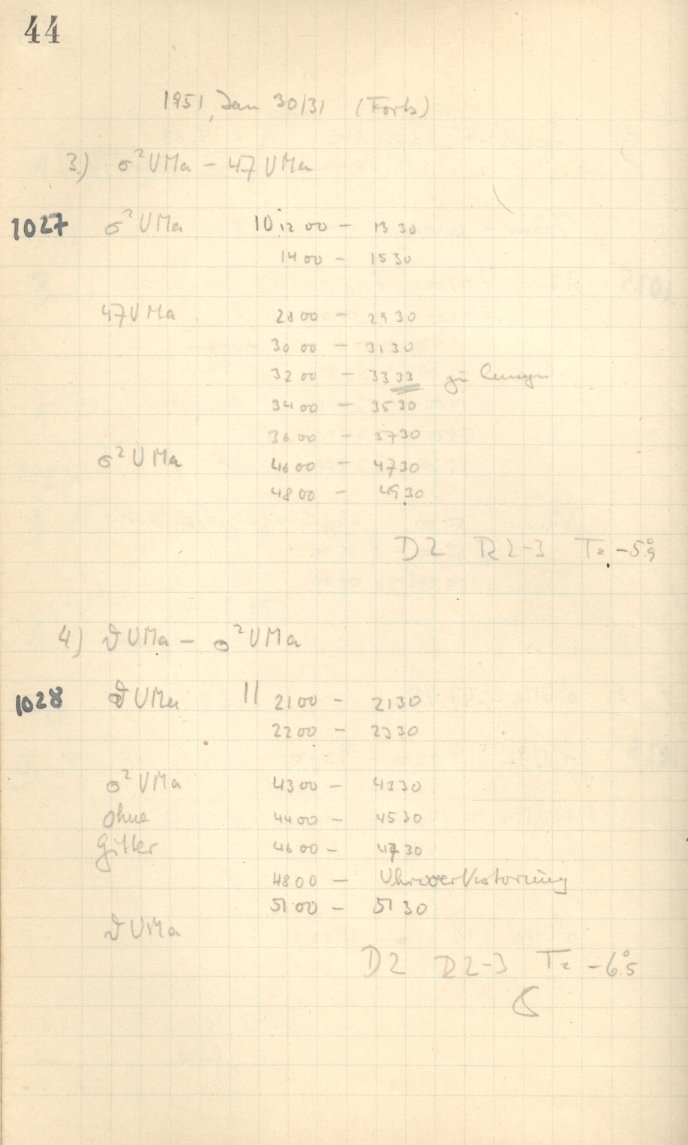 44
1951, Jan 30/31 (Forts)
3.) σ² UMa – 47 UMa
1027 σ² UMa 10 12 00 – 13 30
14 00 – 15 30
47 UMa 28 00 – 29 30
30 00 – 31 30
32 00 – 33 33 zu
34 00 – 35 30
36 00 – 37 30
σ² UMa 46 00 – 47 30
48 00 – 49 30
D2 R2-3 T= -5°.9
4) ϑ UMa – σ² UMa
1028 ϑ UMa 11 21 00 – 21 30
22 00 – 23 30
σ² UMa 43 00 – 43 30
ohne 44 00 – 45 30
Gitter 46 00 – 47 30
48 00 –
51 00 – 51 30
ϑ UMa
D2 R2-3 T= -6°.5